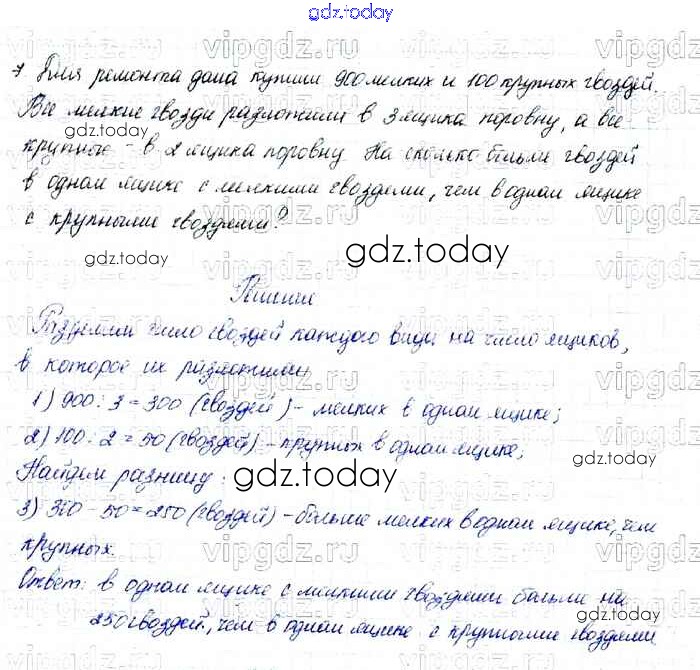 gdz.today
7 Для ремонта дома купили 900 мелких и 100 крупных гвоздей.
Все мелкие гвозди разложили в 3 ящика поровну, а все
крупные - в 2 ящика поровну. На сколько больше гвоздей
в одном ящике с мелкими гвоздями, чем в одном ящике
с крупными гвоздями?
Решение
Разделим число гвоздей каждого вида на число ящиков,
в которое их разложили
1) 900 : 3 = 300 (гвоздей) - мелких в одном ящике;
2) 100 : 2 = 50 (гвоздей) - крупных в одном ящике;
Найдем разницу:
3) 300 - 50 = 250 (гвоздей) - больше мелких в одном ящике, чем
крупных.
Ответ: в одном ящике с мелкими гвоздями больше на
250 гвоздей, чем в одном ящике с крупными гвоздями
gdz.today
gdz.today
gdz.today
gdz.today
gdz.today
gdz.today
gdz.today
vipgdz.ru